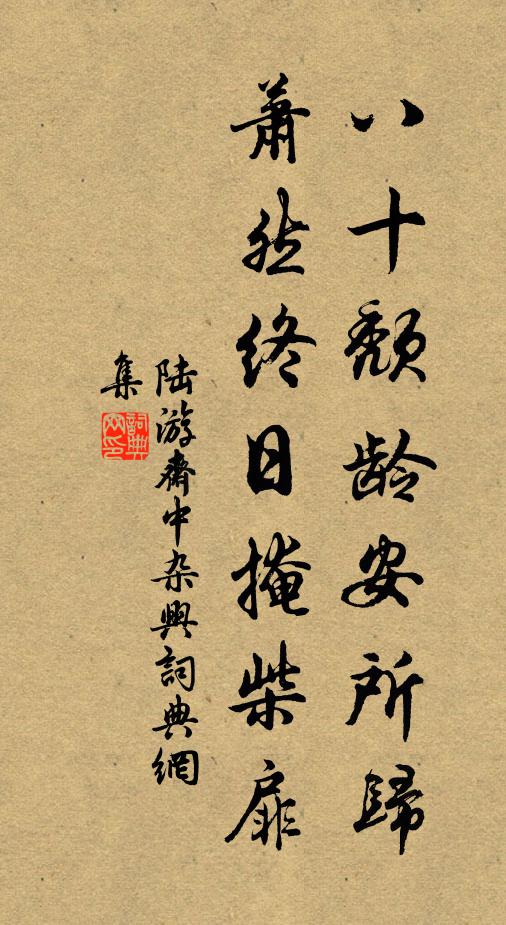 八十颓龄安所歸
蕭然终日掩柴扉
陆游齋中杂興詞典網
集
詞典网印